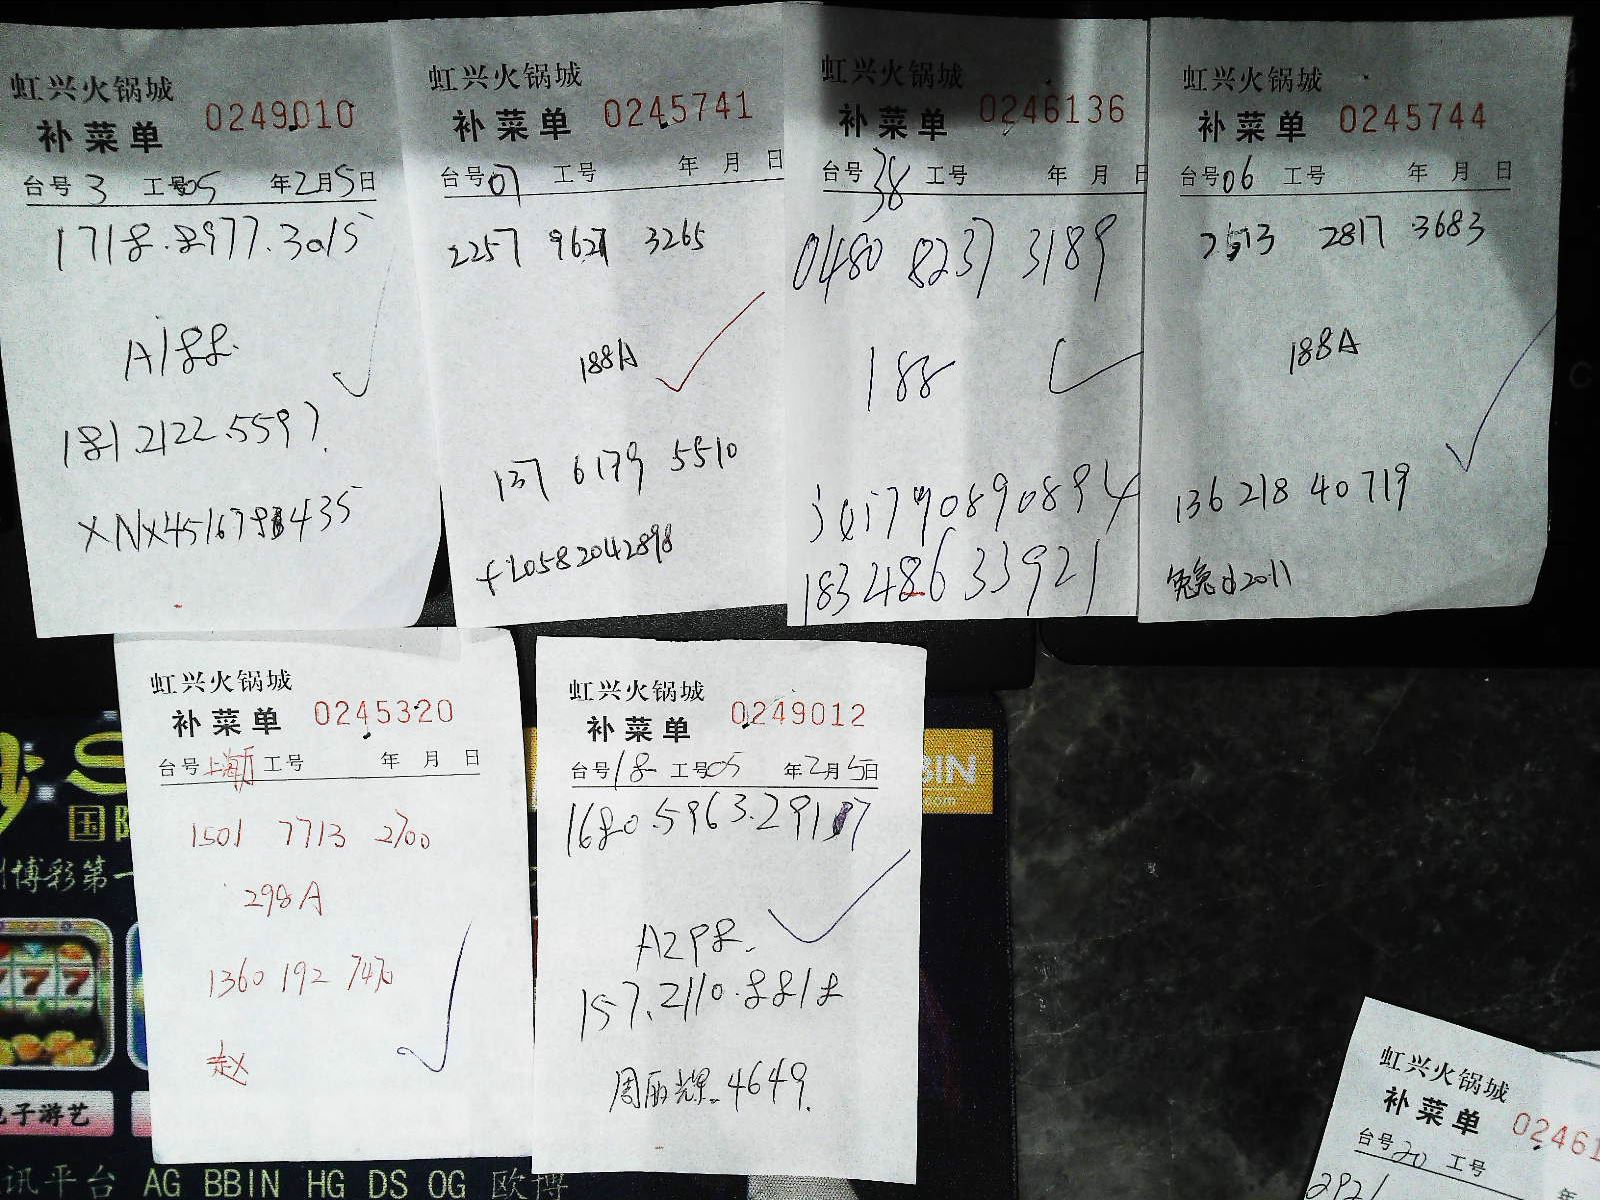 虹兴火锅城
补菜单 0249010
台号 3 工号 05 年 2月 5日
1718.8977.3015
A188.
181.2122.5597.
XNX4516798435
虹兴火锅城
补菜单 0245741
台号 07 工号 年 月 日
2257 9627 3265
188A
137 6179 5510
fL0582042898
虹兴火锅城
补菜单 0246136
台号 38 工号 年 月 日
0480 8237 3189
188
jqi790890894
18348633921
虹兴火锅城
补菜单 0245744
台号 06 工号 年 月 日
2513 2817 3683
188A
136 218 40719
兔兔d2011
虹兴火锅城
补菜单 0245320
台号 上海厅 工号 年 月 日
1501 7713 2700
298A
1360 192 7470
赵
虹兴火锅城
补菜单 0249012
台号 18 工号 05 年 2月 5日
1680.5963.2917
A298.
157.2110.8818
周丽辉.4649.
虹兴火锅城
补菜单 02461
台号 20 工号 年
2921
国际
博彩第一
BIN
777
电子游艺
讯平台 AG BBIN HG DS OG 欧博